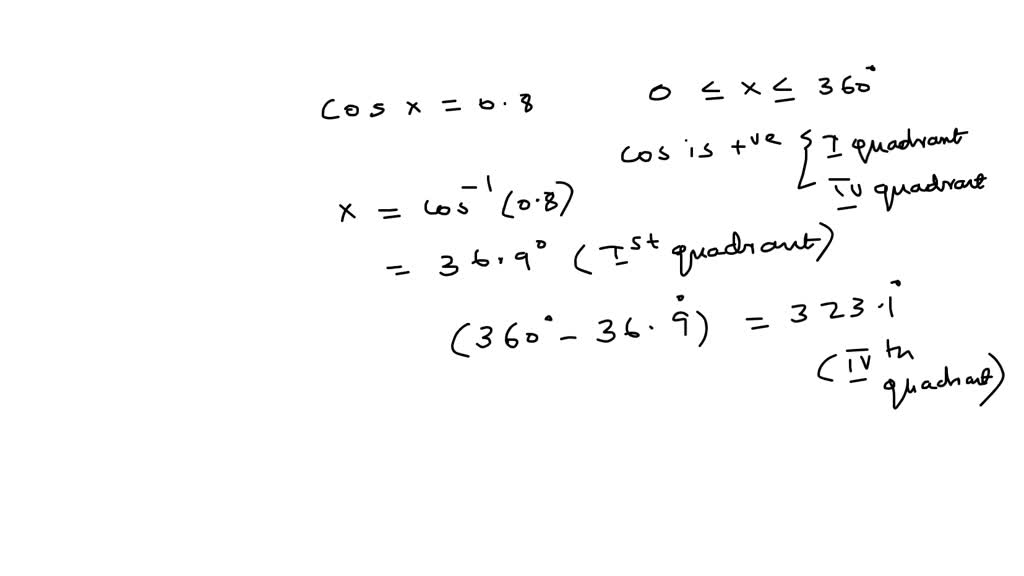 cos x = 0.8 0 ≤ x ≤ 360°
cos is +ve { I quadrant
IV quadrant
x = cos⁻¹ (0.8)
= 36.9° (Ist quadrant)
(360° - 36.9°) = 323.1°
(IV th
quadrant)